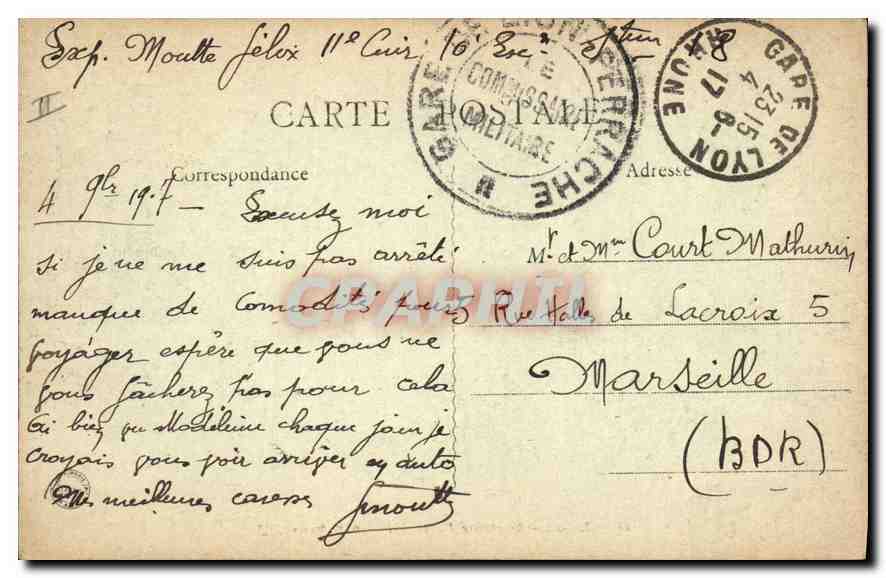 Exp. Moutte Félix 11e Cuir. 10 Esc.
CARTE POSTALE
GARE DE LYON PERRACHE
LE
COMMISSAIRE
MILITAIRE
GARE DE LYON
23 15
4
17
RHONE
II
Correspondance
Adresse
4 9bre 19.7 — Excusez moi
si je ne me suis pas arrêté
manque de comodités pour
voyager espère que vous ne
vous fâcherez pas pour cela
ai bien vu Madeleine chaque jour je
croyais vous voir arriver en auto
Mes meilleures caresses
Fmoutte
Mr. et Mme Court Mathurin
5 Rue Halles de Lacroix 5
Marseille
(BDR)
CPAPHIL